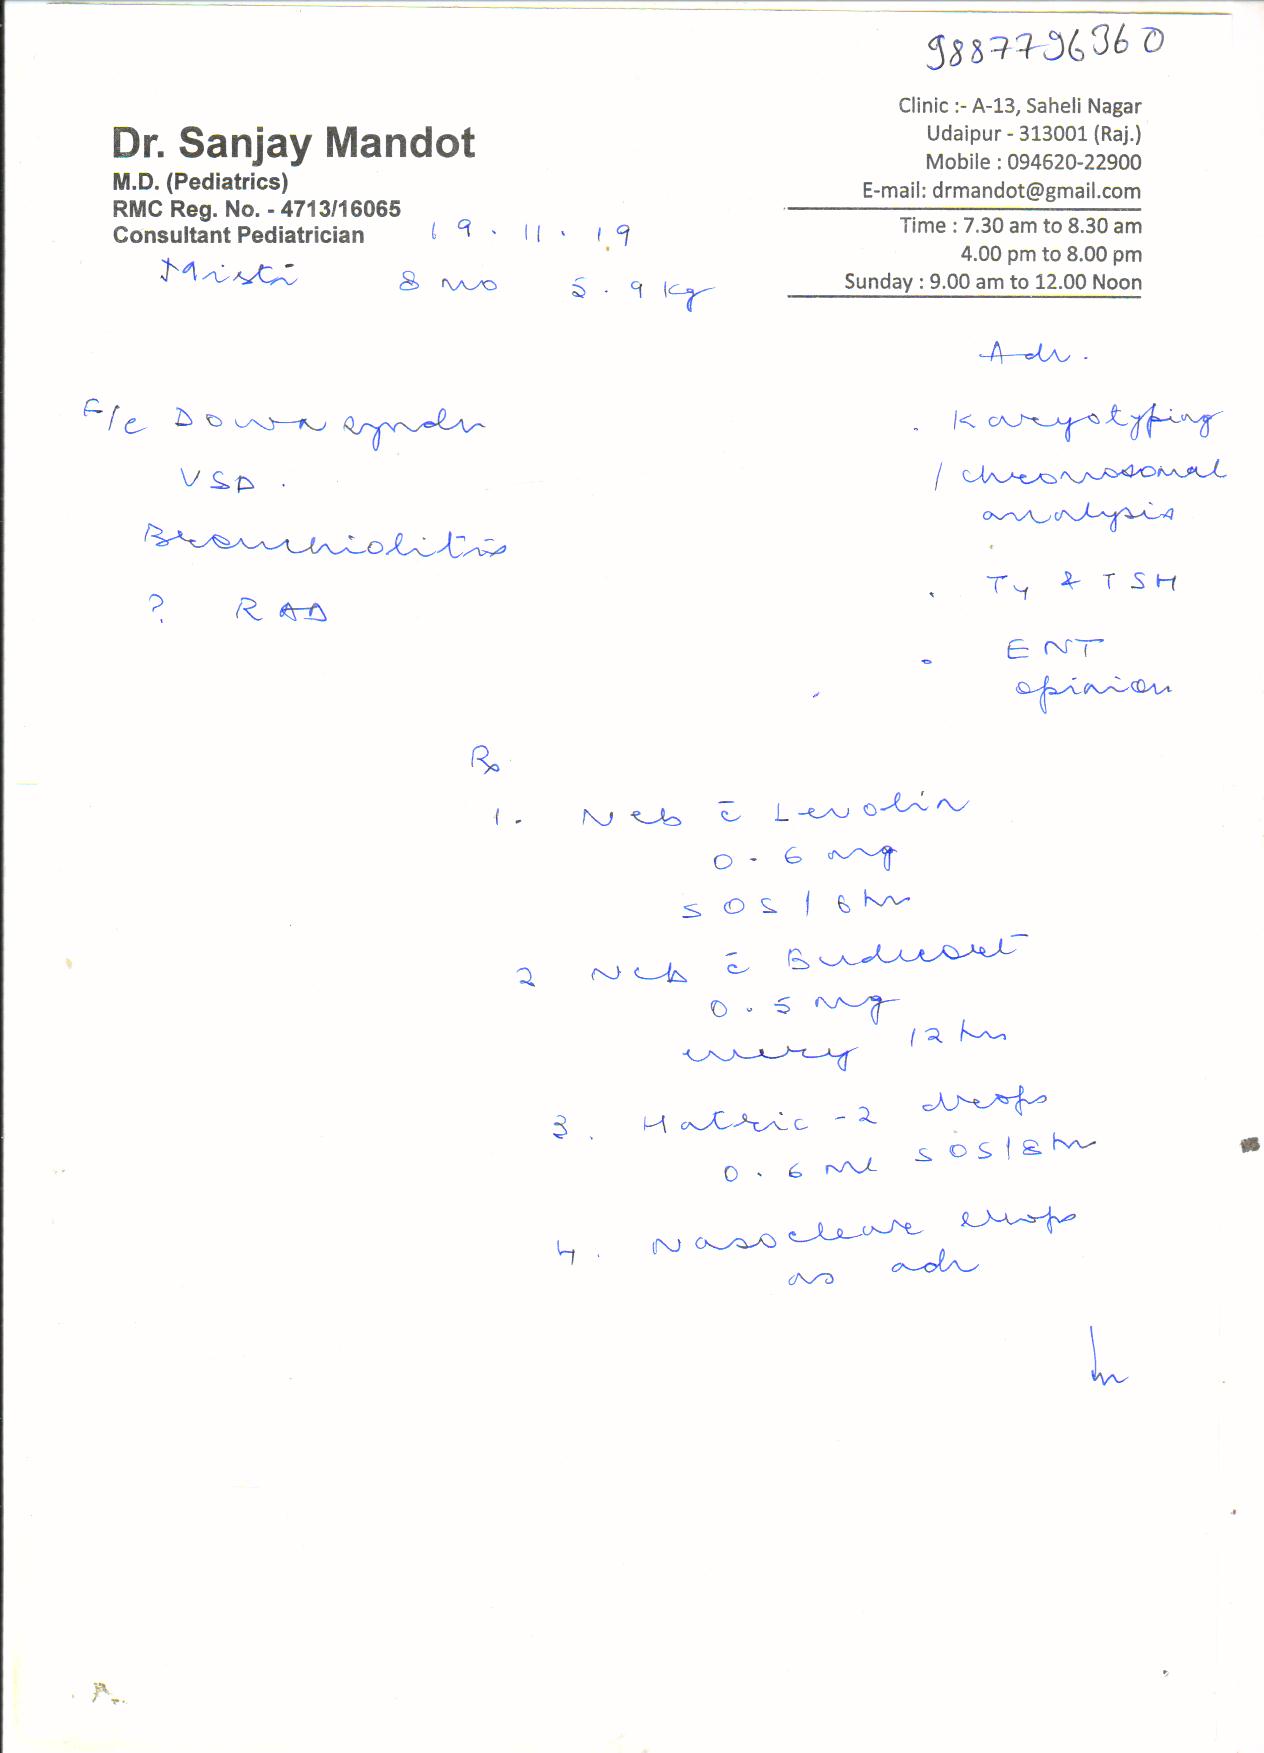 9887796360
Clinic :- A-13, Saheli Nagar
Udaipur - 313001 (Raj.)
Mobile : 094620-22900
E-mail: drmandot@gmail.com
Time : 7.30 am to 8.30 am
4.00 pm to 8.00 pm
Sunday : 9.00 am to 12.00 Noon
Dr. Sanjay Mandot
M.D. (Pediatrics)
RMC Reg. No. - 4713/16065
Consultant Pediatrician
19.11.19
Misti 8 mo 5.9 kg
F/c Down syndr
VSD.
Bronchiolitis
? RAD
Adv.
. Karyotyping
/ chromosomal
analysis
. T4 & TSH
. ENT
opinion
Rx
1. Neb c̄ Levolin
0.6 mg
SOS / 6 hr
2 Neb c̄ Budecort
0.5 mg
every 12 hr
3. Hatric -2 drops
0.6 ml SOS / 8 hr
4. Nasoclear drops
as adv